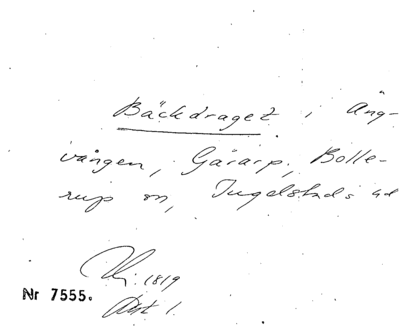 Bäckdraget i Äng-
vången, Gårarp, Bolle-
rup sn, Ingelstads hd
1819
Nr 7555.
Akt 1.